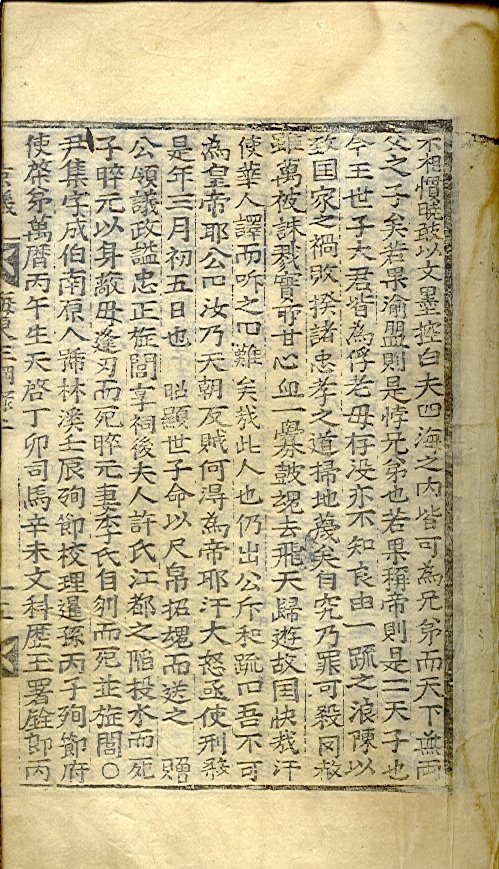 不相憎晩玆以文墨控白夫四海之內皆可為兄弟而天下無兩
父之子矣若果渝盟則是悖兄弟也若果稱帝則是二天子也
今王世子大君皆為俘老母存没亦不知良由一疏之浪陳以
致囯家之禍敗揆諸忠孝之道掃地蔑矣自究乃罪可殺罔赦
雖萬被誅戮實所甘心血一釁鼓魂去飛天歸遊故囯快哉汗
使華人譯而听之曰難矣哉此人也仍出公斥和疏曰吾不可
為皇帝耶公曰汝乃天朝反賊何淂為帝耶汗大怒亟使刑殺
是年三月初五日也 昭顯世子命以尺帛招魂而送之 贈
公領議政謚忠正旌閭享祠後夫人許氏江都之陷投水而死
子晬元以身敵母逢刃而死晬元妻李氏自刎而死並旌閭○
尹集字成伯南原人號林溪壬辰殉節校理暹孫丙子殉節府
使棨弟萬曆丙午生天啓丁卯司馬辛未文科歷王署銓郎丙
三綱錄